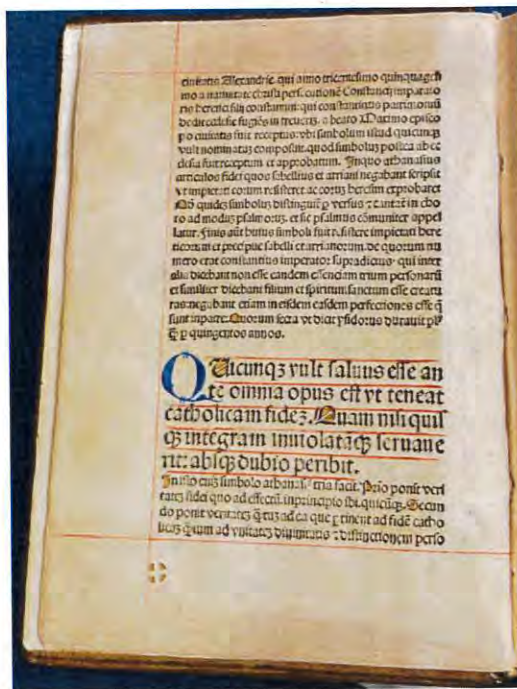 ciuitatis Alexandrie. qui anno tricentesimo quinquagesi
mo a natiuitate christi persecutionē Constancij imparato
ris heretici filij constantini: qui constantinus patrimoniū
dedit ecclesie fugiēs in treueris. a beato Maximo episco
po ciuitatis fuit receptus: vbi simbolum istud quicunqȝ
vult nominatus composuit. quod simbolus postea ab ec
clesia fuit receptum et approbatum. Inquo athanasius
articulos fidei quos sabellius et arriani negabant scripsit
vt impietati eorum resisteret ac eorum heresim reprobaret
quidē simbolus distinguit p versus ⁊ cantat in cho
ro ad modus psalmorus. et sic psalmus cōmuniter appel
latur. Finis aūt huius simboli fuit resistere impietati here
ticorum et precipue sabelli et arrianorum. de quorum nu
mero erat constantius imperator supradictus. qui inter
alia dicebant non esse eandem essenciam trium personarū
et similiter dicebant filium et spiritum sanctum esse creatu
ras: negabant etiam in eisdem easdem perfectiones esse q̄
sunt inpatre. Quorum secta vt dicit ysidorus durauit pl̄
p quingentos annos.
QUicunqȝ vult saluus esse an
te omnia opus est vt teneat
catholicam fideȝ. Quam nisi quis
qȝ integram inuiolatāqȝ seruaue
rit: absqȝ dubio peribit.
In isto simbolo athanasi⁹ tria facit. Prīo ponit veri
tates fidei quo ad effectū. inprincipio ibi. quicūqȝ. Secun
do ponit veritates ad ea que ptinent ad fidē catho
licā ad vnitatē diuinitatis ⁊ distinctionem perso